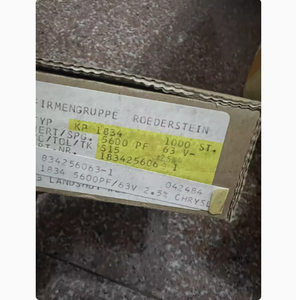 FIRMENGRUPPE ROEDERSTEIN
TYP KP 1834 1000 ST.
WERT/SPG. 5600 PF 63 V-
C/TOL/TK S15
RT.NR. 1834256063-1
834256063-1 042484
1834 5600PF/63V 2.5% CHRYSL
G LANDSHUT